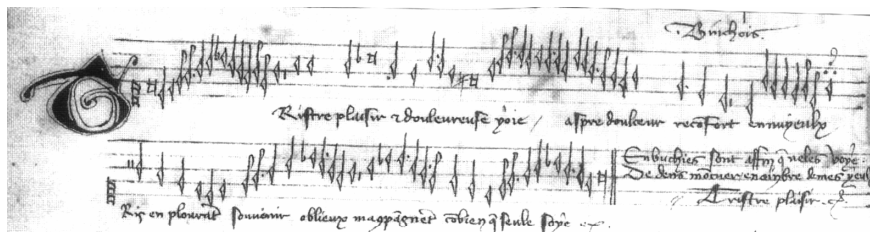 Binchois.
Tristre plaisir & douleureuse yoie / aspre doulceur reco̅fort ennuyeulx
Ris en plourant souvenir oblieux m'aco̅pagne̅t co̅bien q̅ seule soye
Enbuchies sont affin q̅ ne les voye.
De dens mo̅ cuer en o̅bre de mes yeulx
Tristre plaisir. &c.